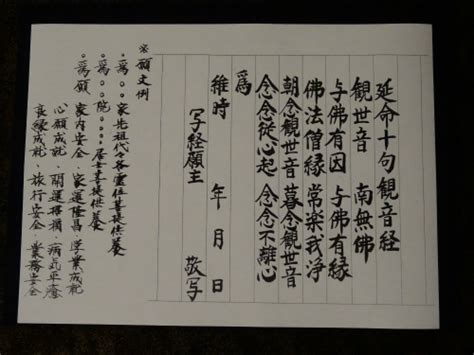 延命十句観音経
観世音　南無佛
与佛有因　与佛有縁
佛法僧縁　常楽我浄
朝念観世音　暮念観世音
念念従心起　念念不離心
為
維時　年　月　日
写経願主　敬写
※願文例
・為○○家先祖代々各霊位菩提供養
・為○○院○○○○居士菩提供養
・為願　家内安全　家運隆昌　学業成就
心願成就　開運招福　病気平癒
良縁成就・旅行安全・業務安全